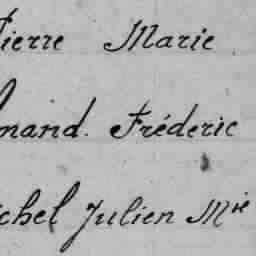 Pierre Marie
mand. Fréderic
ichel Julien Mie